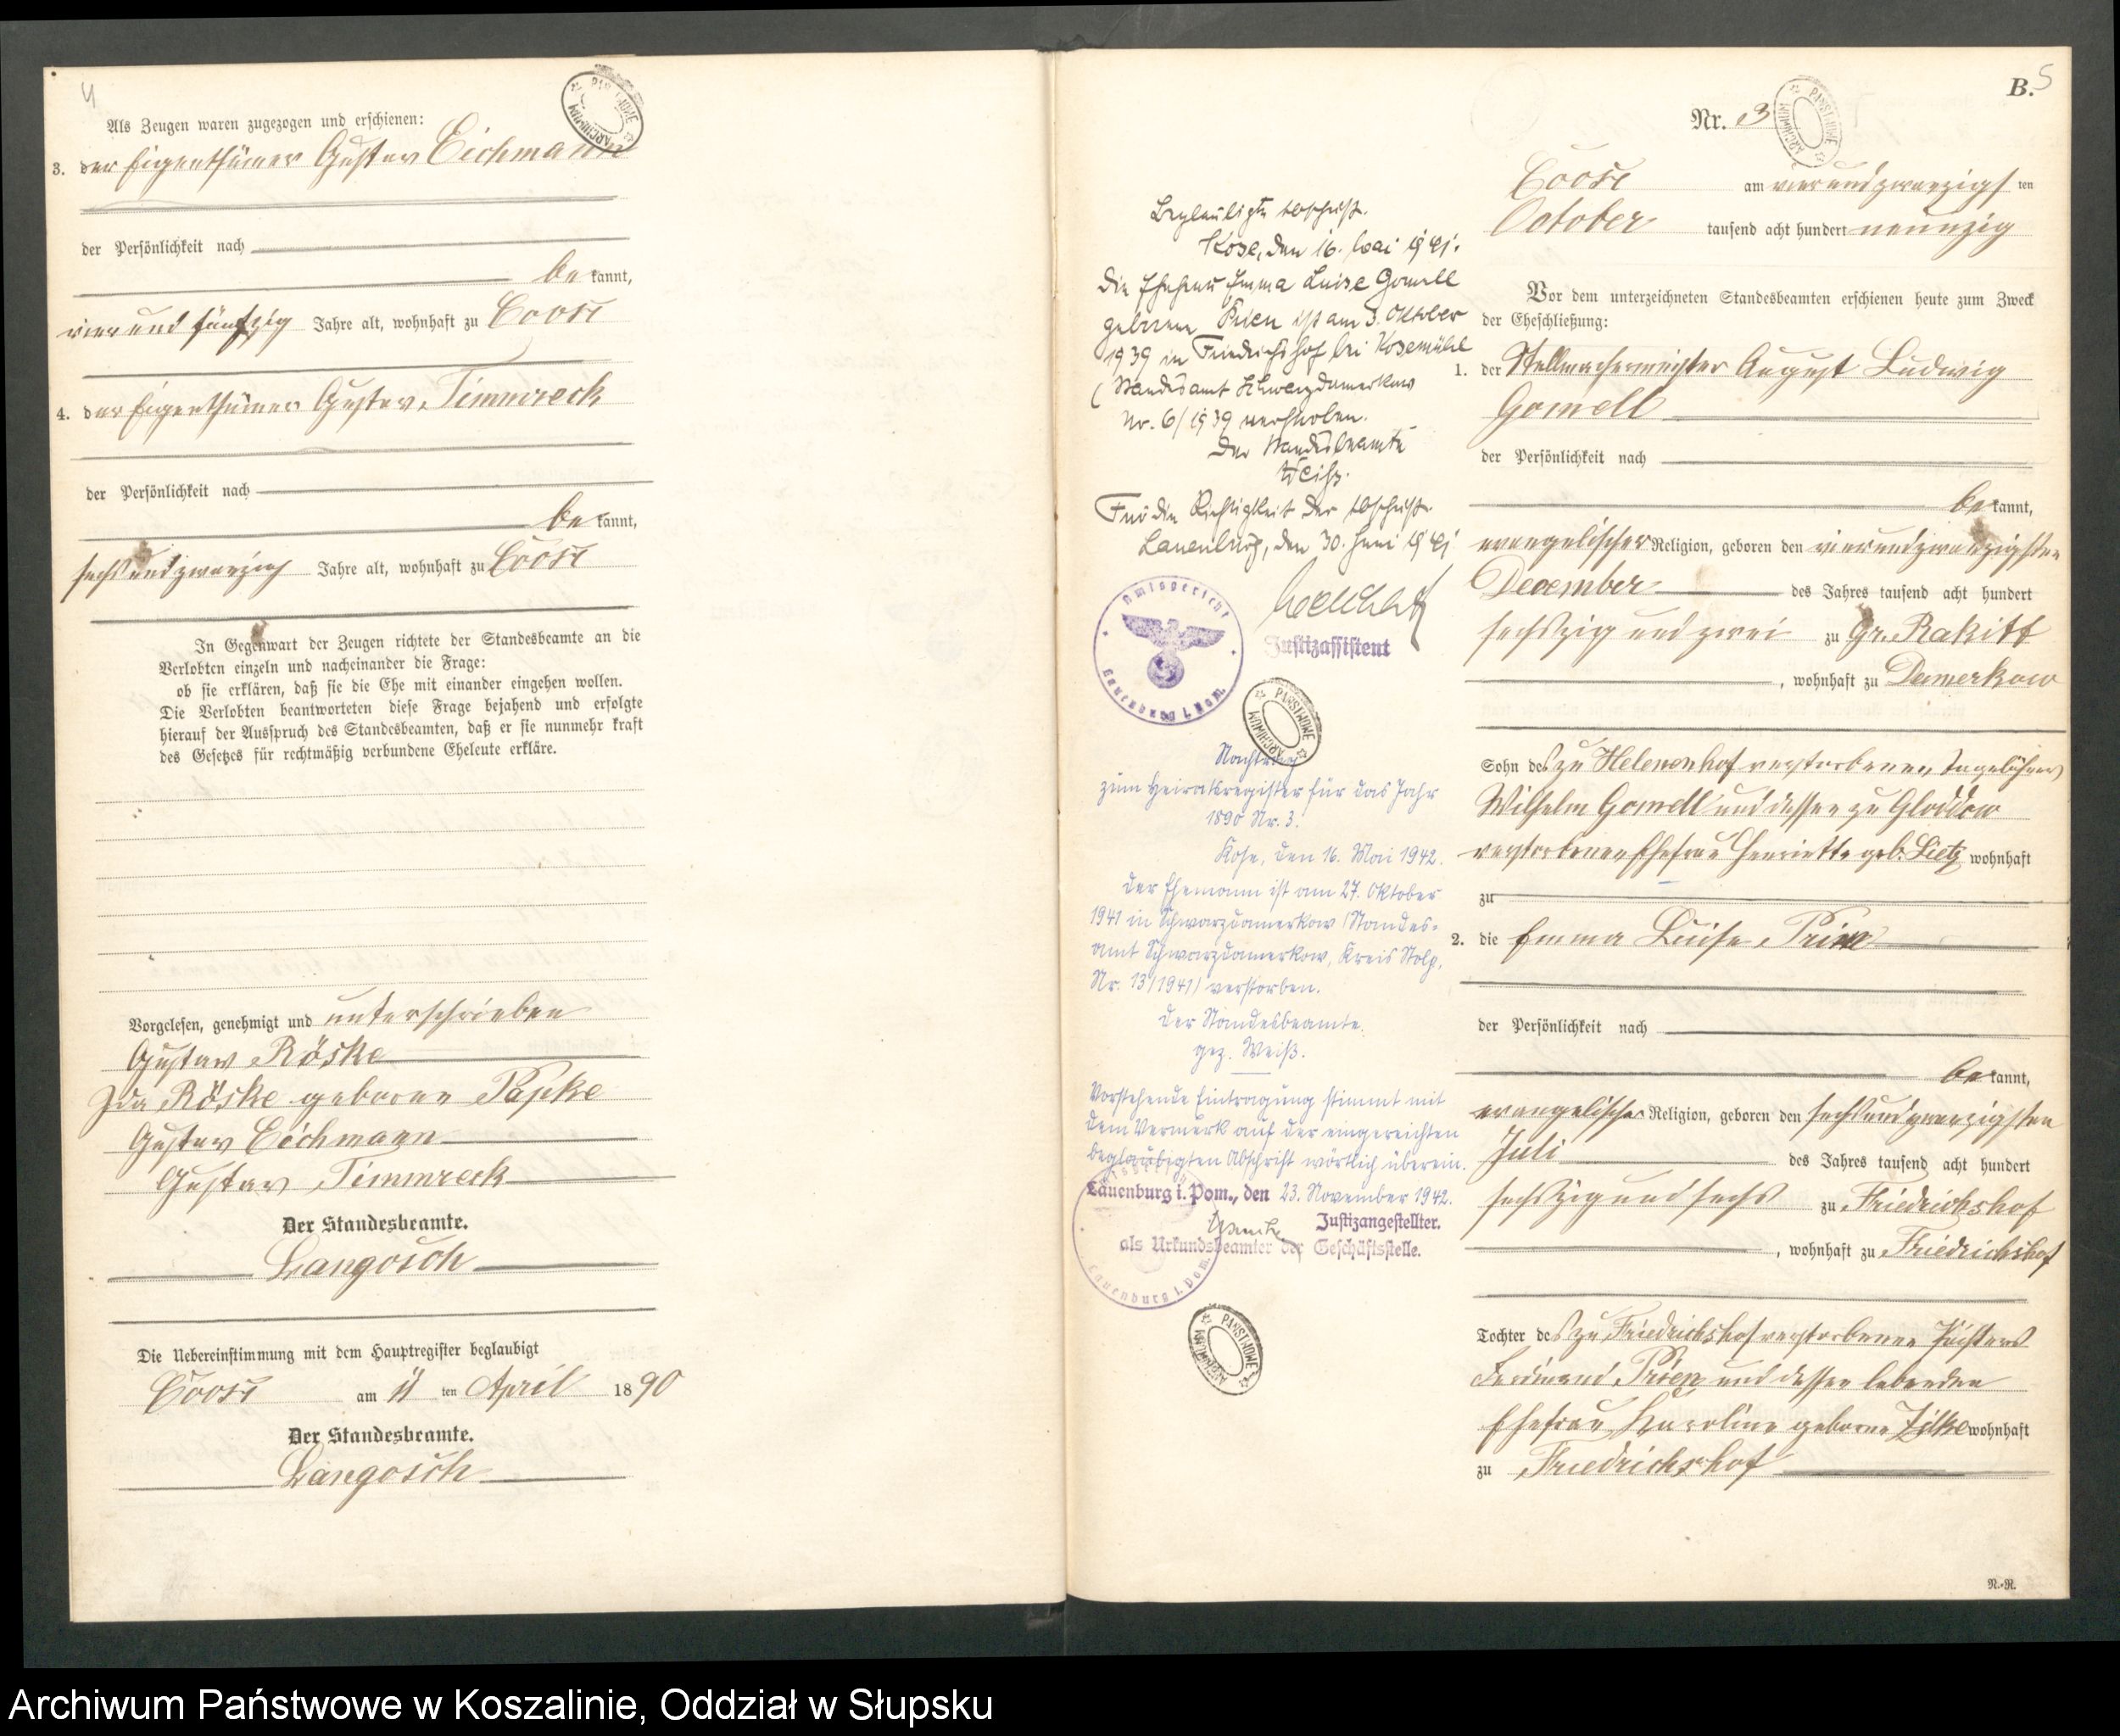 4
Als Zeugen waren zugezogen und erschienen:
3. der Eigenthümer Gustav Eichmann
der Persönlichkeit nach
be kannt,
vier und fünfzig Jahre alt, wohnhaft zu Coose
4. der Eigenthümer Gustav Timmreck
der Persönlichkeit nach
be kannt,
sechsundzwanzig Jahre alt, wohnhaft zu Coose
In Gegenwart der Zeugen richtete der Standesbeamte an die
Verlobten einzeln und nacheinander die Frage:
ob sie erklären, daß sie die Ehe mit einander eingehen wollen.
Die Verlobten beantworteten diese Frage bejahend und erfolgte
hierauf der Ausspruch des Standesbeamten, daß er sie nunmehr kraft
des Gesetzes für rechtmäßig verbundene Eheleute erkläre.
Vorgelesen, genehmigt und unterschrieben
Gustav Röske
Ida Röske geborene Papke
Gustav Eichmann
Gustav Timmreck
Der Standesbeamte.
Langosch
Die Uebereinstimmung mit dem Hauptregister beglaubigt
Coose am 11 ten April 1890
Der Standesbeamte.
Langosch
PAŃSTWOWE ARCHIWUM
Beglaubigte Abschrift.
Kose, den 16. Mai 1941.
Die Ehefrau Emma Luise Gomell
geborene Prien ist am 3. Oktober
1939 in Friedrichshof bei Kosemühl
(Standesamt Schwarzdamerkow
Nr. 6/1939 verstorben.
Der Standesbeamte
Weiß.
Für die Richtigkeit der Abschrift
Lauenburg, den 30. Juni 1941
Justizassistent
Amtsgericht
Lauenburg i. Pom.
PAŃSTWOWE ARCHIWUM
Nachtrag
zum Heiratsregister für das Jahr
1890 Nr. 3.
Kose, den 16. Mai 1942.
Der Ehemann ist am 27. Oktober
1941 in Schwarzdamerkow (Standes-
amt Schwarzdamerkow, Kreis Stolp,
Nr. 13/1941) verstorben.
Der Standesbeamte.
gez. Weiß.
Vorstehende Eintragung stimmt mit
dem Vermerk auf der eingereichten
beglaubigten Abschrift wörtlich überein.
Lauenburg i. Pom., den 23. November 1942.
Justizangestellter.
als Urkundsbeamter der Geschäftsstelle.
Lauenburg i. Pom.
PAŃSTWOWE ARCHIWUM
B. 5
Nr. 3
PAŃSTWOWE ARCHIWUM
Coose am vierundzwanzigs ten
October tausend acht hundert neunzig
Vor dem unterzeichneten Standesbeamten erschienen heute zum Zweck
der Eheschließung:
1. der Stellmachermeister August Ludwig
Gomell
der Persönlichkeit nach
be kannt,
evangelischer Religion, geboren den vierundzwanzigsten
December des Jahres tausend acht hundert
sechszig und zwei zu Gr. Rakitt
, wohnhaft zu Damerkow
Sohn des zu Helenenhof verstorbenen Tagelöhners
Wilhelm Gomell und dessen zu Gloddow
verstorbenen Ehefrau Henriette geb. Lietz wohnhaft
zu
2. die Emma Luise Prien
der Persönlichkeit nach
be kannt,
evangelischer Religion, geboren den sechsundzwanzigsten
Juli des Jahres tausend acht hundert
sechszig und sechs zu Friedrichshof
, wohnhaft zu Friedrichshof
Tochter des zu Friedrichshof verstorbenen Pächters
Ferdinand Prien und dessen lebenden
Ehefrau Karoline geborne Zilke wohnhaft
zu Friedrichshof
N.-R.
Archiwum Państwowe w Koszalinie, Oddział w Słupsku